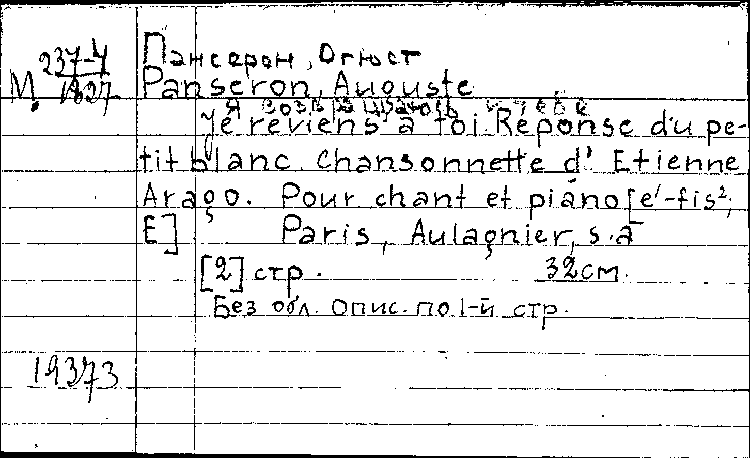 Пансерон, Огюст
М. 237-4/1827
Panseron, Auguste
Я возвращаюсь к тебе
Je reviens à toi. Réponse du pe-
tit blanc. Chansonnette d' Etienne
Arago. Pour chant et piano [e¹-fis²;
E] Paris, Aulagnier, s.a
[2] стр. 32 см.
Без обл. Опис. по 1-й стр.
19373